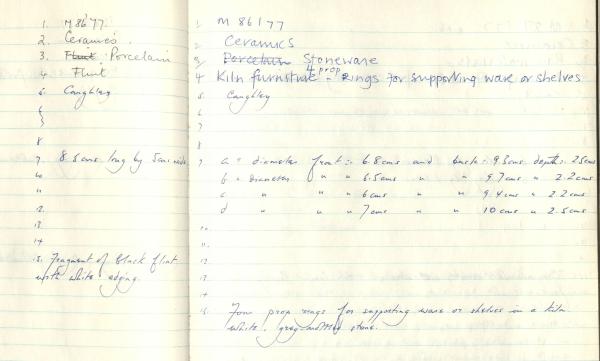 1. M 86 77.
2. Ceramics.
3. Flint Porcelain
4 Flint
5 Caughley
6
7
8
9. 8.5cms long by 5cms wide
10
11
12.
13.
14
15. Fragment of black flint
with white edging.
1 M 86 177
2 Ceramics
3/ Porcelain Stoneware
4 Kiln furniture - 4 prop rings for supporting ware or shelves
5 Caughley
6
7
8
9 a = diameter front :- 6.8cms and back :- 9.3cms depth :- 2.5cms
b = diameter " " 6.5cms " " 9.7cms " 2.2cms
c " " " 6cms " " 9.4cms " 2.2cms
d " " " 7cms " " 10cms " 2.5cms
10.
11.
12.
13
14
15 Four prop rings for supporting ware or shelves in a kiln
white, grey mottled stone.